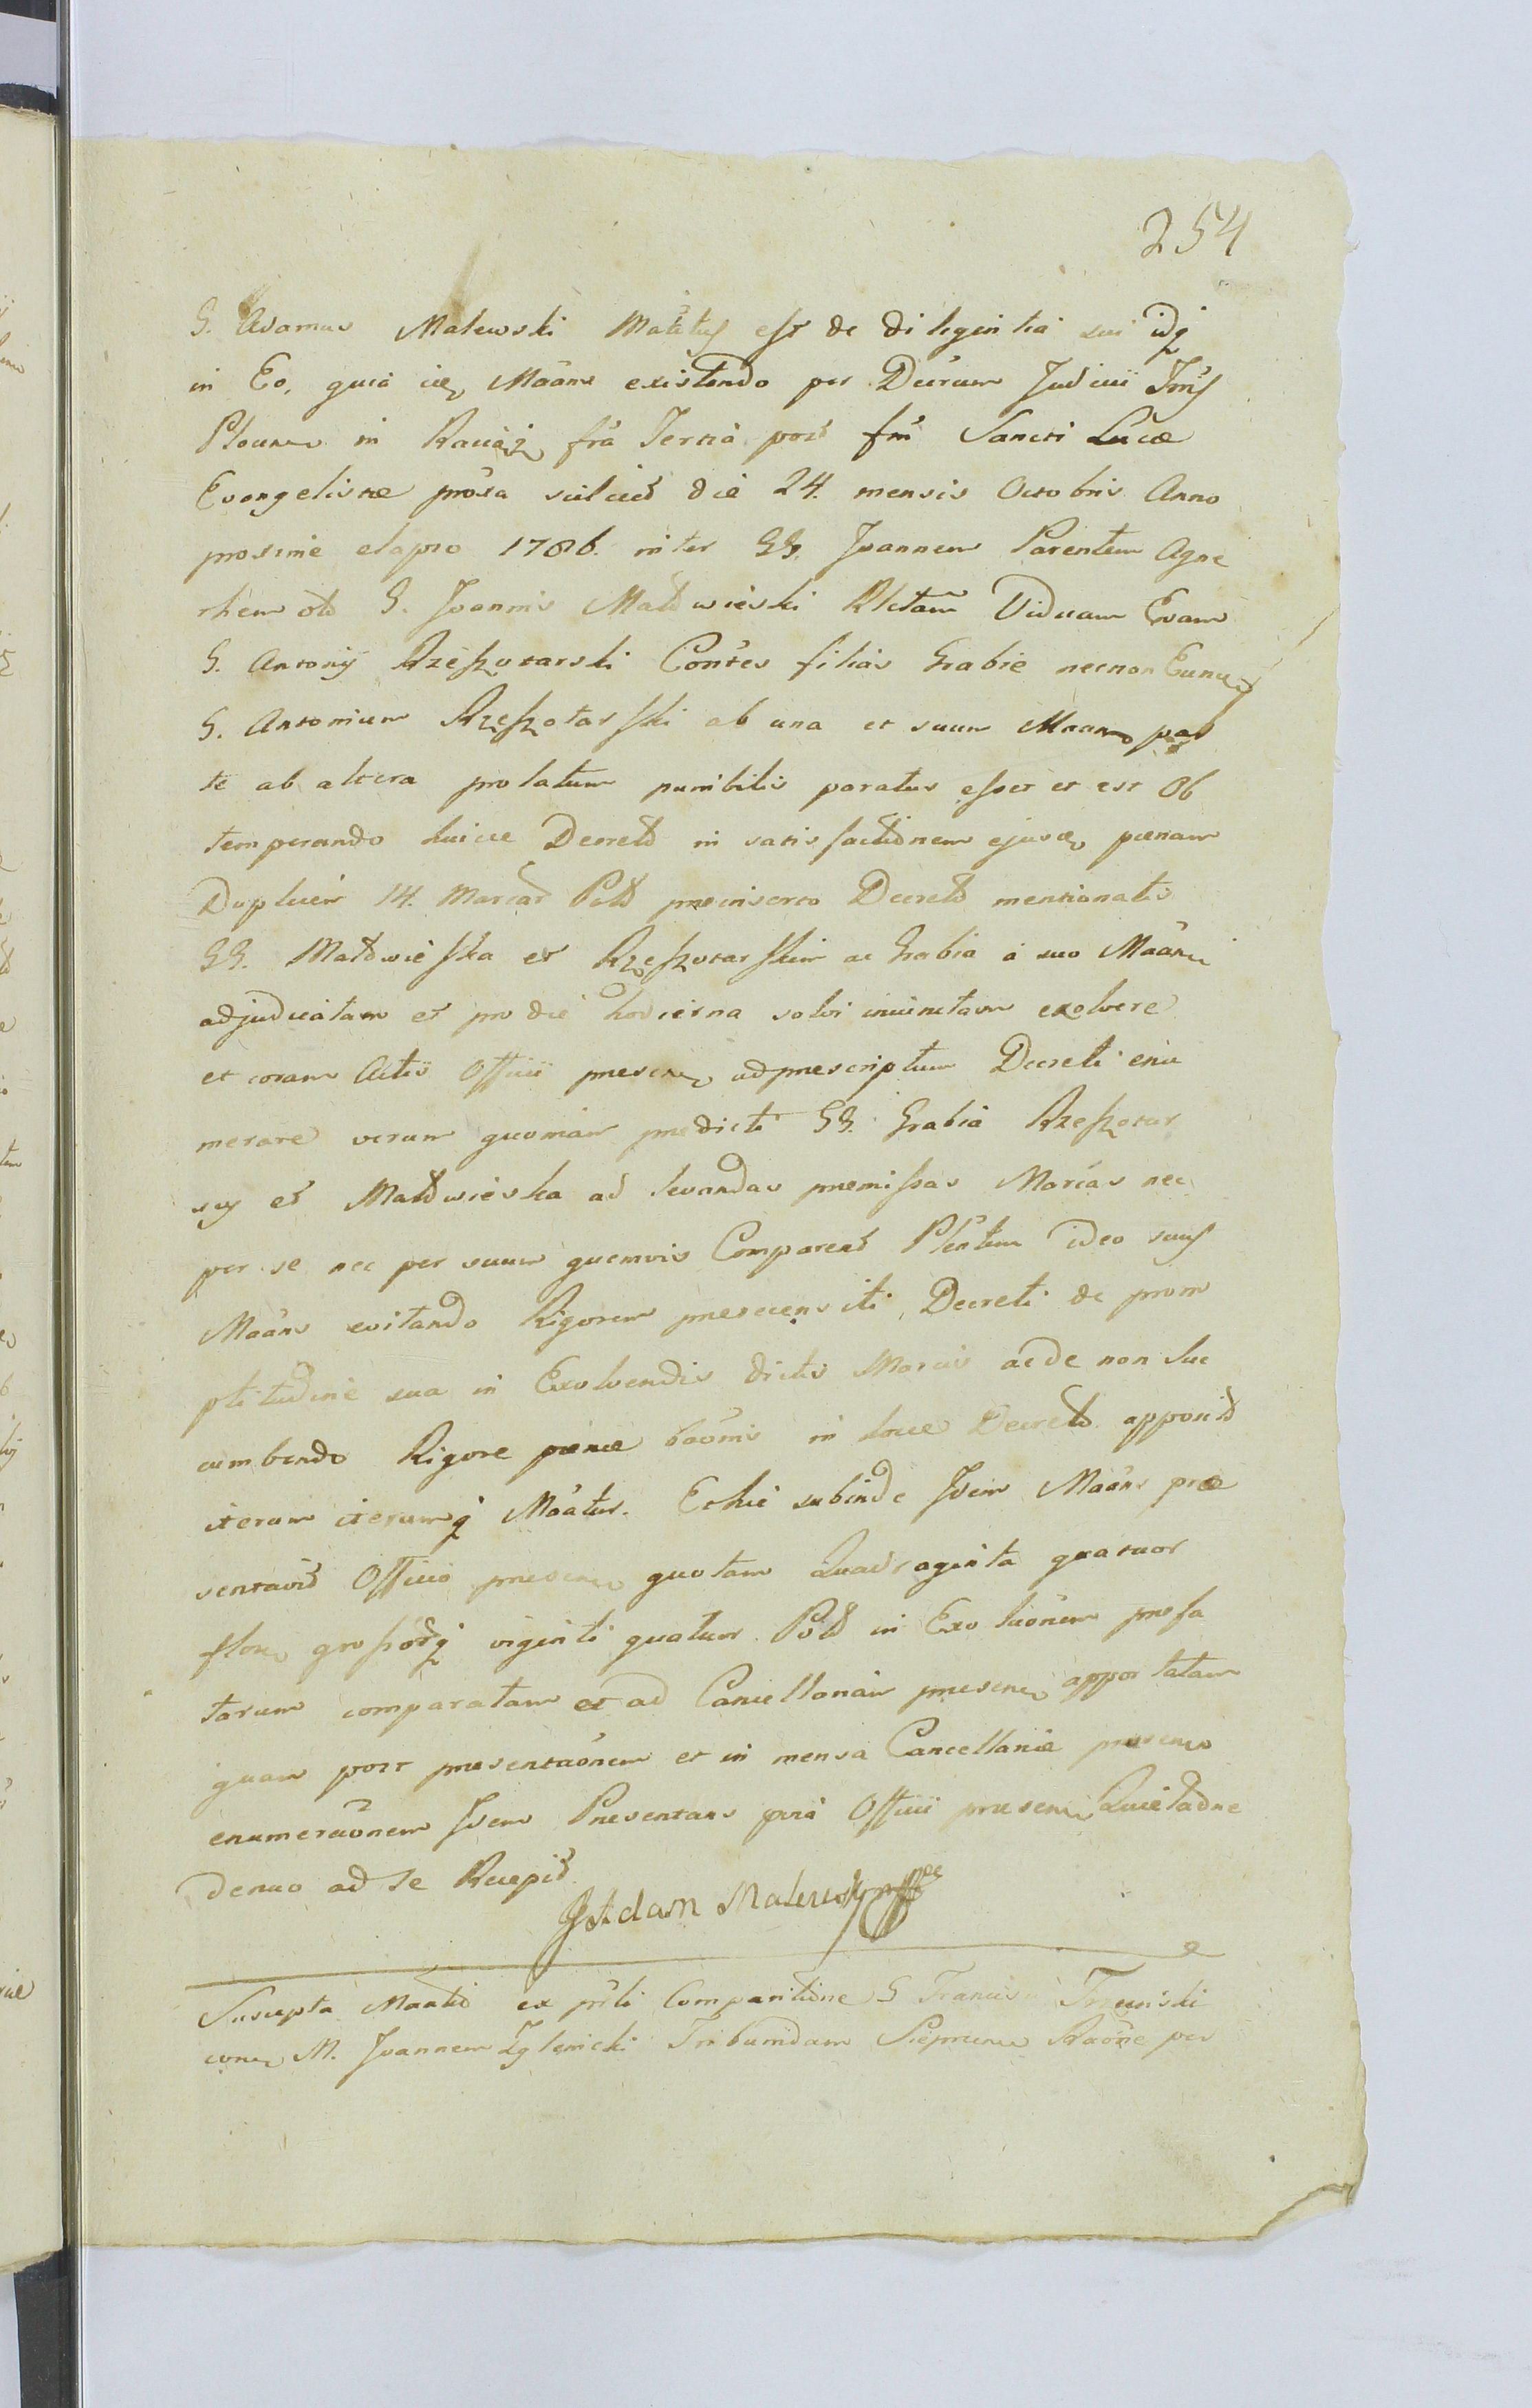 254
G. Adamus Malewski Mãttus est de diligentia sui idq
in Eo, quia ide Mãans existendo per Decretum Judicii Trris
Plocen in Raciąż fra Tertia post fm Sancti Lucæ
Evangelistæ proxa scilicet die 24. mensis Octobris Anno
proxime elapso 1786. inter GG. Joannem Parentem Agne
them olo G. Joannis Małowieski Rlctam Viduam Evam
G. Antonij Rzeszotarski Contes filias Grabie necnon Eund
G. Antonium Rzeszotarski ab una et suum Maan par
te ab altera prolatum punibilis paratus esset et est Ob
temperando huice Decreto in satisfactionem ejusde pœnam
Duplicem 14. Marcar Polo præinserto Decreto mentionatis
GG. Małowieska et Rzeszotarskim ac Grabia a suo Mãan
adjudicatam et pro die hodierna solvi injunctam exolvere
et coram Actis Officii præsen ad præscriptum Decreti enu
merare verum quoniam prædicti GG. Grabia Rzeszotar
scy et Małowieska ad levandas præmissas Marcas nec
per se nec per suum quemvis Comparent Plentum ideo suus
Mãans evitando Rigorem præscensiti Decreti de prom
ptitudine sua in Exolvendis dictis Marcis ac de non suc
cumbendo Rigore pœnæ baonis in hoce Decreto apposito
iterum iterumq Mãatur. Et hic subinde Idem Mãans præ
sentavit Officio præsen quotam Quadraginta quatuor
floren grossorq viginti quatuor Polo in Exoluõnem præfa
tarum comparatam et ad Cancellariam præsen apportatam
quam post præsentaõnem et in mensa Cancellariæ præsen
enumeraõnem Idem Præsentans præa Officii præsen Quietaõne
denuo ad se Recepit
G Adam Malewski mppe
Suscepta Maatio ex prli Comparitione G Francisci Trzcinski
conq M. Joannem Zglenicki Tribunidam Sieprcen Raõne per